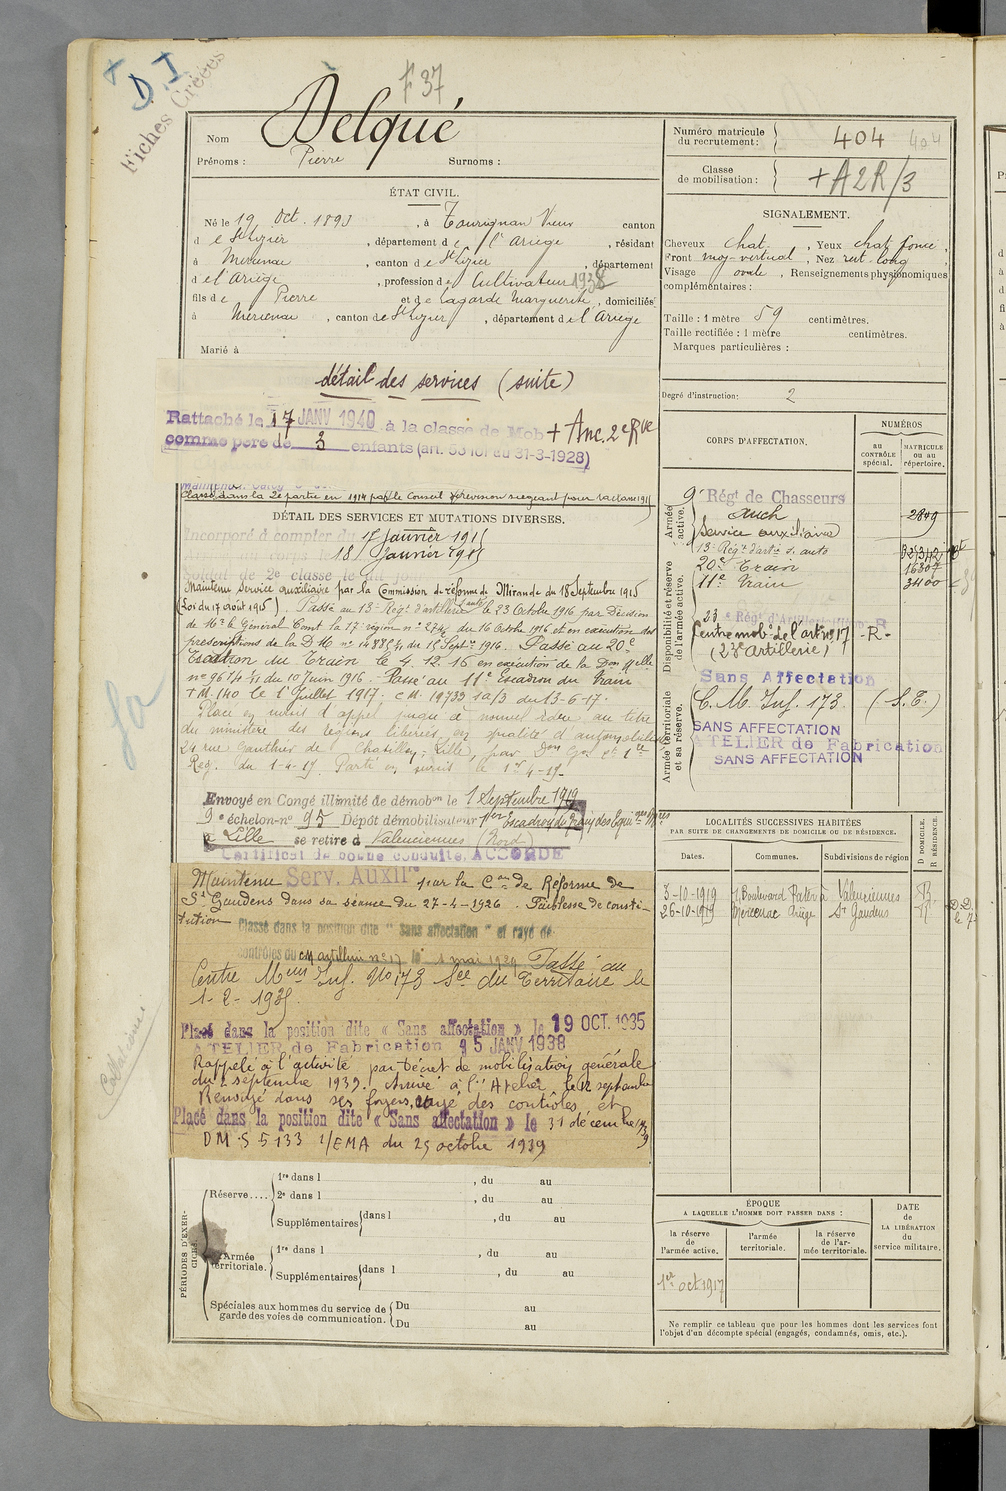 F 37
+ D. I
Fiches Créées
Nom Delqué
Prénoms : Pierre Surnoms :
Numéro matricule du recrutement : 404 404
Classe de mobilisation : + A2R/3
ÉTAT CIVIL.
Né le 19 Oct. 1893, à Tourignan Vieux canton
d e St Lizier, département d e l'Ariège, résidant
à Mercenac, canton d e St Lizier, département
d e l'Ariège, profession d e Cultivateur 1938
fils d e Pierre et d e Lagarde Marguerite, domiciliés
à Mercenac, canton de St Lizier, département d e l'Ariège
Marié à
SIGNALEMENT.
Cheveux chat., Yeux chat foncé,
Front moy-vertical, Nez rect-long
Visage ovale, Renseignements physionomiques
complémentaires :
Taille : 1 mètre 59 centimètres.
Taille rectifiée : 1 mètre centimètres.
Marques particulières :
Degré d'instruction : 2
détail des services (suite)
Rattaché le 17 JANV 1940 à la classe de Mob + Anc. 2e Rve
comme père de 3 enfants (art. 58 loi du 31-3-1928)
Classé dans la 2e partie en 1914 par le Conseil de révision siégeant pour la classe 1915
DÉTAIL DES SERVICES ET MUTATIONS DIVERSES.
Incorporé à compter du 17 Janvier 1915
Arrivé au corps le 18 Janvier 1915
Soldat de 2e classe le dit jour
Maintenu service auxiliaire par la Commission de réforme de Mirande du 18 Septembre 1915
(Loi du 17 août 1915). Passé au 13e Régt d'artillerie (auto) le 23 Octobre 1916 par Décision
de Mr le Général Comt la 17e région no 274 du 16 Octobre 1916 et en exécution des
prescriptions de la D M. no du 15 Septre 1916. Passé au 20e
Escadron du Train le 4.12.16 en exécution de la Don Mlle
no du 10 Juin 1916. Passé au 11e Escadron du Train
T.M. 140 le 1er Juillet 1917. C M. 19733 1a/3 du 13-6-17.
Placé en sursis d'appel jusqu'à nouvel ordre au titre
du ministère des régions libérées en qualité d'automobiliste
21 rue Gauthier de Chatillon, Lille, par Don Gén et 1ère
Rég. du 1-4-19. Parti en sursis le 1er 4-19-
Envoyé en Congé illimité de démobon le 1 Septembre 1919
9e échelon-no 95 Dépôt démobilisateur 1er Escadron du Train des Équipages Mres
à Lille se retire à Valenciennes (Nord)
Certificat de bonne conduite, ACCORDÉ
Maintenu Serv. Auxilre par la Con de Réforme de
St Gaudens dans sa séance du 27-4-1926. Faiblesse de consti-
tution Classé dans la position dite "Sans affectation" et rayé des
contrôles du CM artillerie no 17 le 1 mai 1929 Passé au
Centre Mon Inf. No 173 Sce du Territoire le
1-2-193
Placé dans la position dite « Sans affectation » le 19 OCT. 1935
ATELIER de Fabrication 15 JANV 1938
Rappelé à l'activité par décret de mobilisation générale
du 2 septembre 1939. Arrivé à l'Atelier le 12 septembre
Renvoyé dans ses foyers, rayé des contrôles et
Placé dans la position dite « Sans affectation » le 31 décembre 1939
DM. S 5133 1/EMA du 25 octobre 1939
Collationné
CORPS D'AFFECTATION.
NUMÉROS
AU CONTRÔLE spécial.
MATRICULE ou au répertoire.
Armée active.
9e Régt de Chasseurs
Auch 2849
Service auxiliaire
Disponibilité et réserve de l'armée active.
13e Régt d'arti s. auto
20e Train 16307
11e Train 3400
23e Régt d'Artillerie
Centre mobe de l'art no 17 - R -
(23e Artillerie)
Sans Affectation
Armée territoriale et sa réserve.
C. M. Inf. 173. (-S. T.)
SANS AFFECTATION
ATELIER de Fabrication
SANS AFFECTATION
LOCALITÉS SUCCESSIVES HABITÉES
PAR SUITE DE CHANGEMENTS DE DOMICILE OU DE RÉSIDENCE.
Dates. Communes. Subdivisions de région D DOMICILE. R RÉSIDENCE.
3-10-1919 Boulevard Pater à Valenciennes R
26-10-1919 Mercenac Ariège St Gaudens R
PÉRIODES D'EXERCICES.
Réserve....
1re dans l , du au
2e dans l , du au
Supplémentaires dans l , du au
Armée territoriale.
1re dans l , du au
Supplémentaires dans l , du au
Spéciales aux hommes du service de garde des voies de communication.
Du au
Du au
ÉPOQUE
A LAQUELLE L'HOMME DOIT PASSER DANS :
la réserve de l'armée active.
l'armée territoriale.
la réserve de l'armée territoriale.
DATE de LA LIBÉRATION du service militaire.
1er oct 1917
Ne remplir ce tableau que pour les hommes dont les services font
l'objet d'un décompte spécial (engagés, condamnés, omis, etc.).